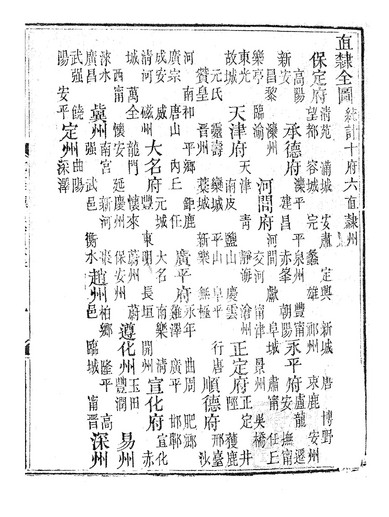 直隸全圖 統計十府六直隸州
保定府 清苑 滿城 安肅 定興 新城 唐 博野
望都 容城 完 蠡 雄 祁州 束鹿 安州
高陽
新安
承德府 灤平 平泉州 豐甯
建昌 赤峯 朝陽
永平府 盧龍 遷
安 撫甯
昌黎 灤州
樂亭 臨渝
河間府 河間 獻 阜城 肅甯 任丘
交河 甯津 景州 吳橋
故城
天津府 天津 青 靜海 滄州
南皮 鹽山 慶雲
正定府 正定 井
陘 獲鹿
元氏 靈壽 欒城 平山 阜平 行唐
贊皇 晉州 藁城 新樂 無極
順德府 邢臺
沙
河 南和 平鄉 鉅鹿
廣宗 唐山 內丘 任
廣平府 永年 曲周 肥鄉
雞澤 廣平 邯鄲
成安 威
清河 磁州
大名府 元城 大名 南樂 清
豐 東明 長垣 開州
宣化府 宣化 赤
城 萬全 龍門 懷來 蔚州
西甯 懷安 延慶州 保安州
遵化州 玉田
豐潤
易州
淶水
廣昌
冀州 南宮 新河 棗
強 武邑 衡水
趙州 柏鄉 隆平 高
邑 臨城 甯晉
深州
武強 饒
陽 安平
定州 曲陽
深澤